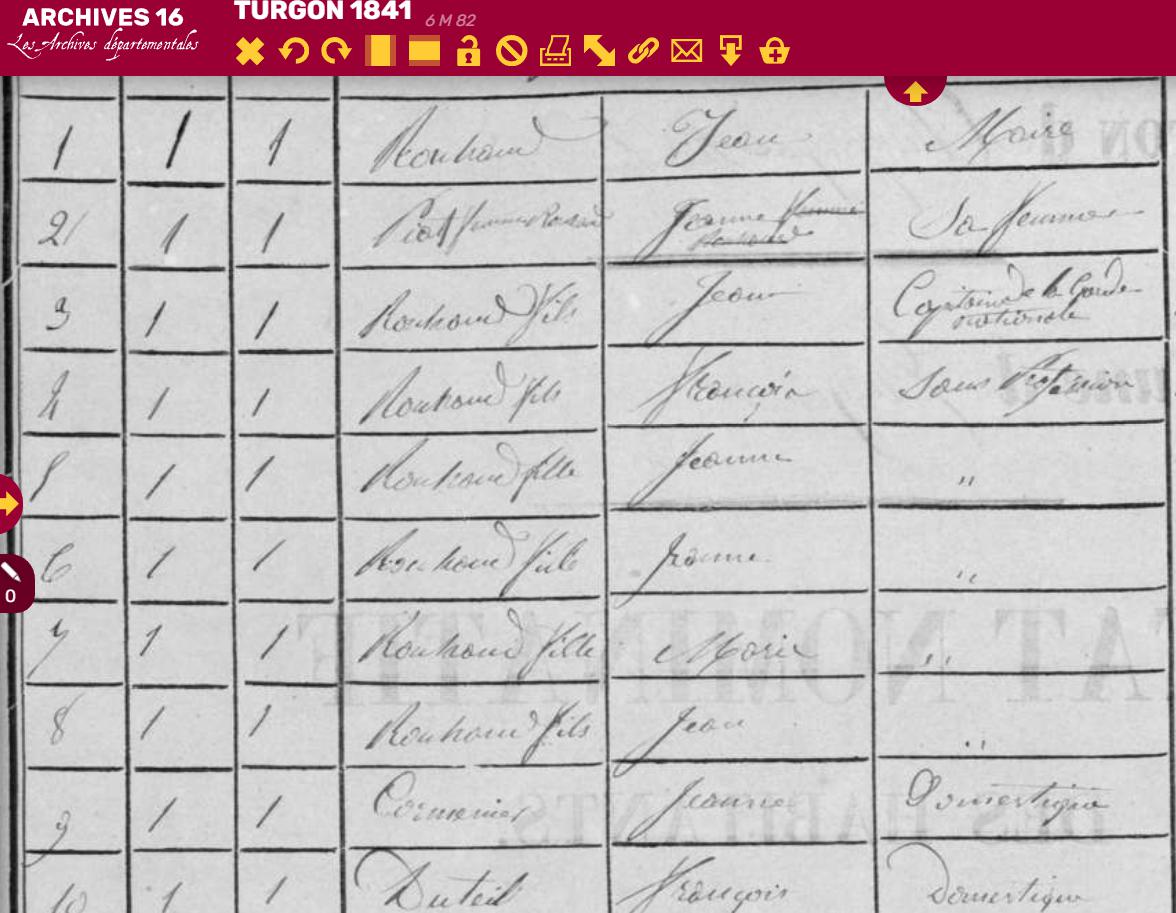 ARCHIVES 16
Les Archives départementales
TURGON 1841 6 M 82
0
1 1 1 Rouhaud Jean Maire
2 1 1 Piot femme Rouhaud Jeanne femme Rouhaud Sa femme
3 1 1 Rouhaud fils Jean Capitaine de la Garde nationale
4 1 1 Rouhaud fils François Sans Profession
5 1 1 Rouhaud fille Jeanne "
6 1 1 Rouhaud fille Jeanne "
7 1 1 Rouhaud fille Marie "
8 1 1 Rouhaud fils Jean "
9 1 1 Cormenier Jeanne Domestique
10 1 1 Duteil François Domestique